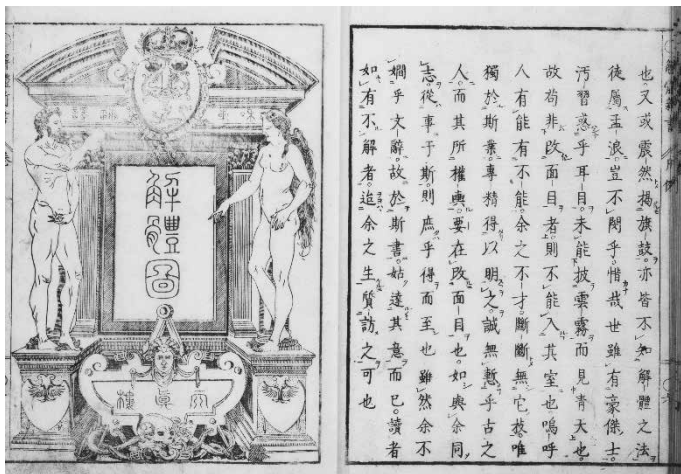 也又或震然揭旗鼓。亦皆不知解體之法
徒屬孟浪。豈不閔乎。惜哉世雖有豪傑士。
汚習惑乎耳目。未能披雲霧而見青天也。
故苟非改面目者。則不能入其室也。嗚呼
人有能有不能。余之不才。斷斷無它技。唯
獨於斯業。專精得以明之。誠無慙乎古之
人。而其所權輿。要在改面目也。如與余同
志從事于斯。則庶乎得而至也。雖然余不
嫺乎文辭。故於斯書。姑達其意而已。讀者
如有不解者。迨余之生質訪之可也
解體圖
天眞樓